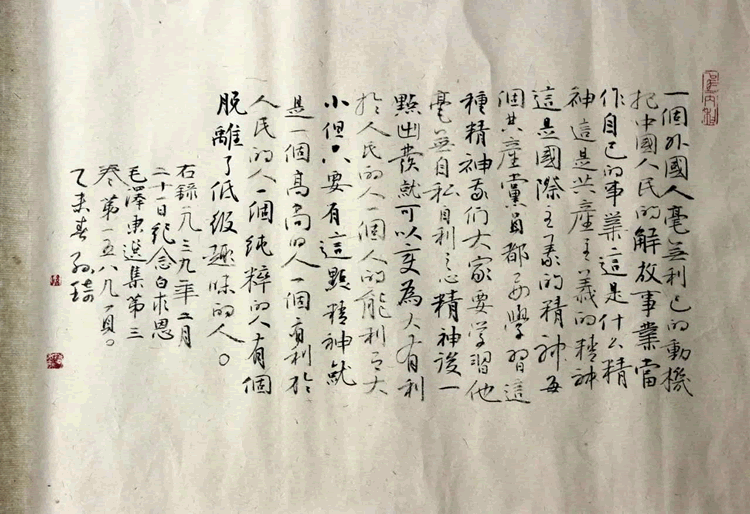 一個外國人毫無利己的動機
把中國人民的解放事業當
作自己的事業這是什么精
神這是共產主義的精神
這是國際主義的精神每
個共產黨員都要學習這
種精神我们大家要学習他
毫無自私自利之心精神從一
點出發就可以变為大有利
於人民的人一個人的能利有大
小但只要有這點精神就
是一個高尚的人一個有利於
人民的人一個純粹的人有個
脫離了低级趣味的人。
右錄一九三九年十二月
二十一日纪念白求恩
毛澤東選集第三
卷第一五八九頁。
乙未春